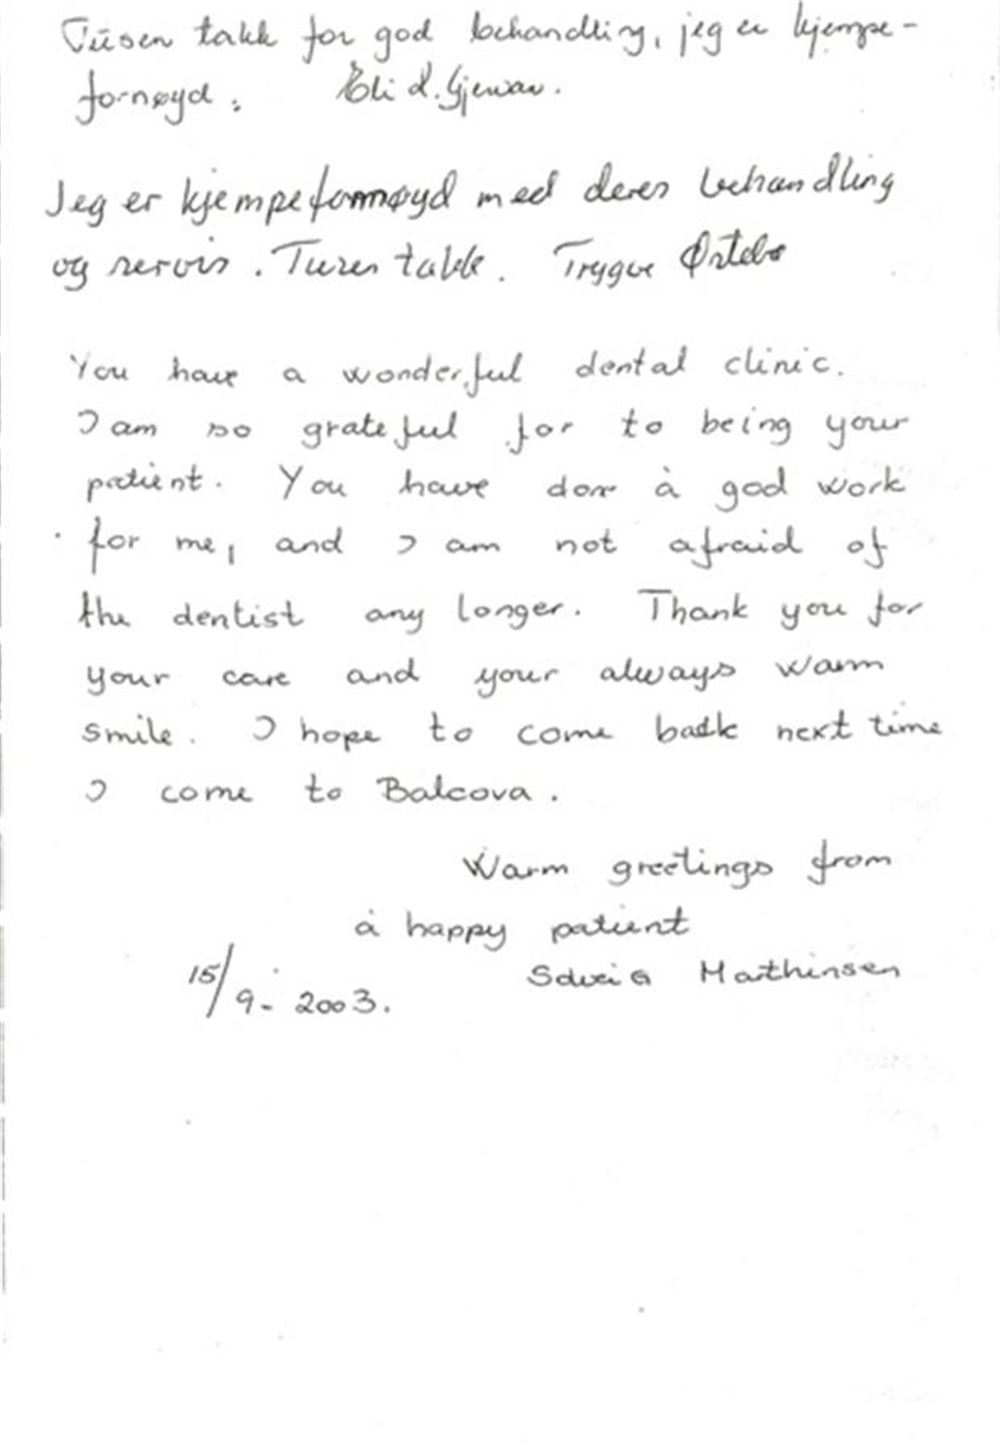 Tusen takk for god behandling, jeg er kjempe-
fornøyd. Eli
Jeg er kjempefornøyd med deres behandling
og servis. Tusen takk. Trygve Ørtebø
You have a wonderful dental clinic.
I am so grateful for to being your
patient. You have don a god work
for me, and I am not afraid of
the dentist any longer. Thank you for
your care and your always warm
smile. I hope to come back next time
I come to Balcova.
Warm greetings from
a happy patient
15/9-2003. Solveig Mathinsen